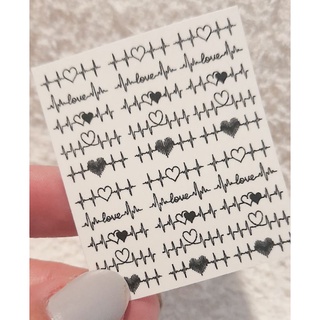 love love love
love love love